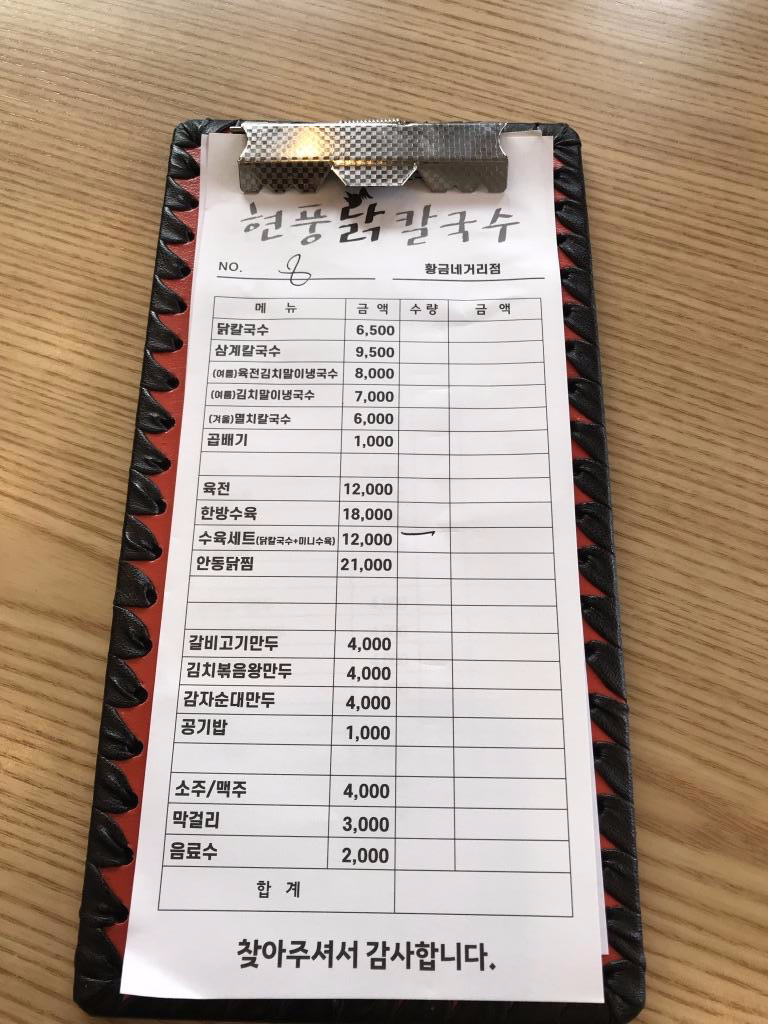 현풍닭칼국수
NO. 8 황금네거리점
메 뉴 금 액 수 량 금 액
닭칼국수 6,500
삼계칼국수 9,500
(여름)육전김치말이냉국수 8,000
(여름)김치말이냉국수 7,000
(겨울)멸치칼국수 6,000
곱배기 1,000
육전 12,000
한방수육 18,000
수육세트(닭칼국수+미니수육) 12,000 一
안동닭찜 21,000
갈비고기만두 4,000
김치볶음왕만두 4,000
감자순대만두 4,000
공기밥 1,000
소주/맥주 4,000
막걸리 3,000
음료수 2,000
합 계
찾아주셔서 감사합니다.